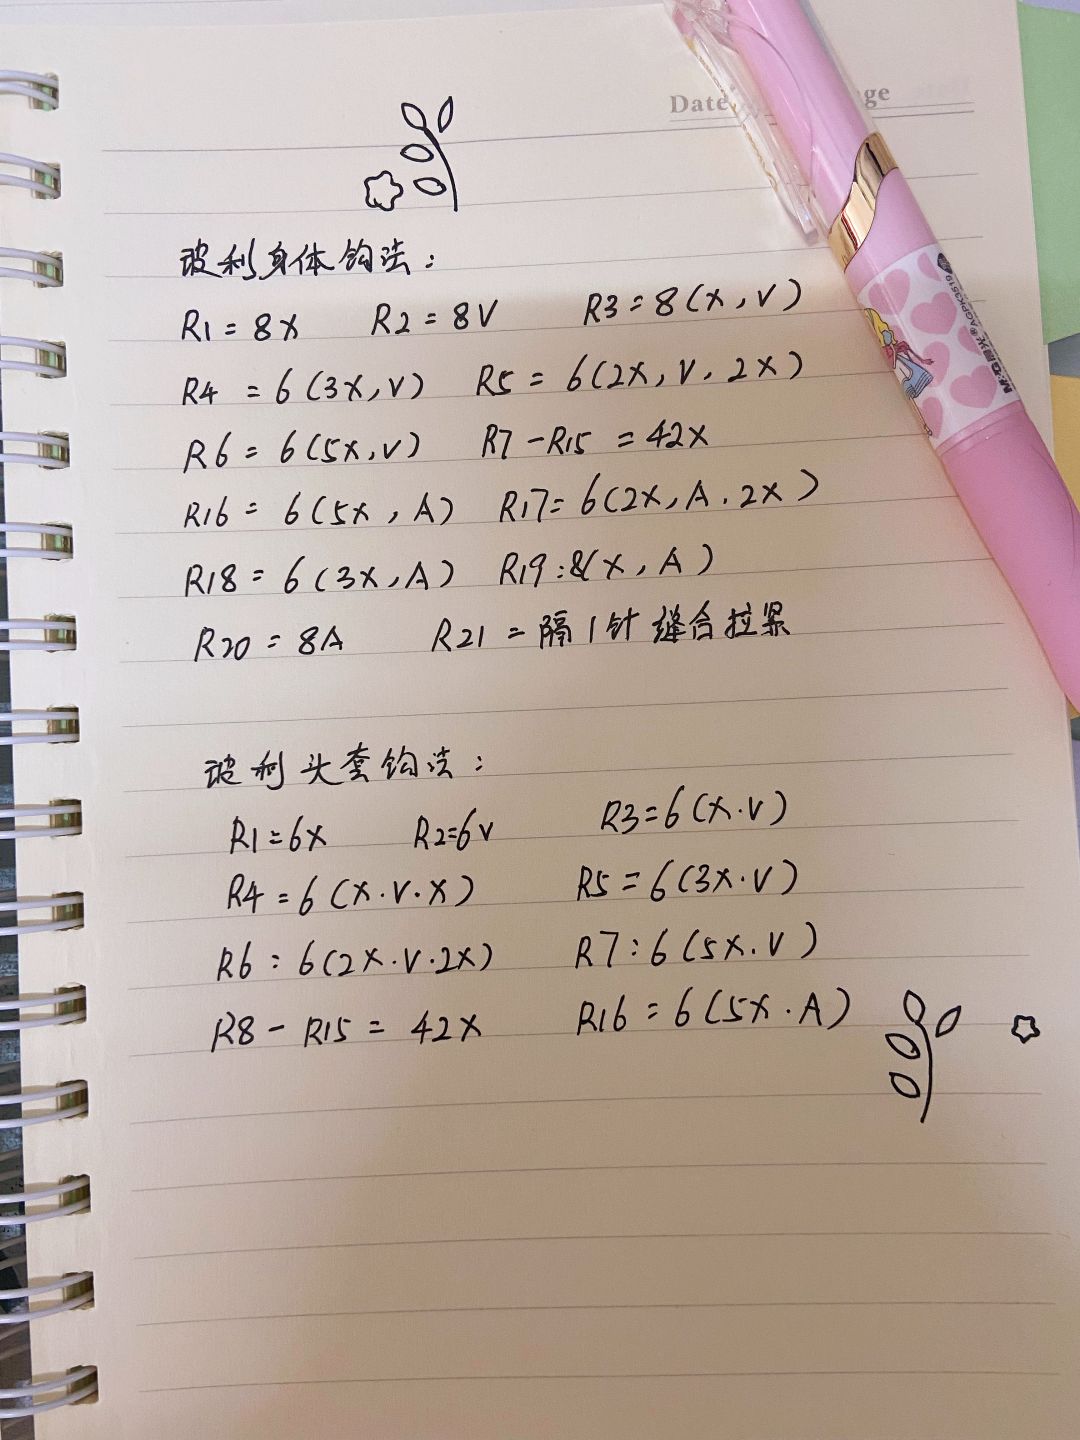 Date
ge
玻利身体钩法：
R1=8X R2=8V R3=8(X,V)
R4=6(3X,V) R5=6(2X,V.2X)
R6=6(5X,V) R7-R15=42X
R16=6(5X,A) R17=6(2X,A.2X)
R18=6(3X,A) R19:8(X,A)
R20=8A R21=隔1针缝合拉紧
玻利头套钩法：
R1=6X R2=6V R3=6(X.V)
R4=6(X.V.X) R5=6(3X.V)
R6:6(2X.V.2X) R7:6(5X.V)
R8-R15=42X R16=6(5X.A)
M&G晨光®AGPK3519